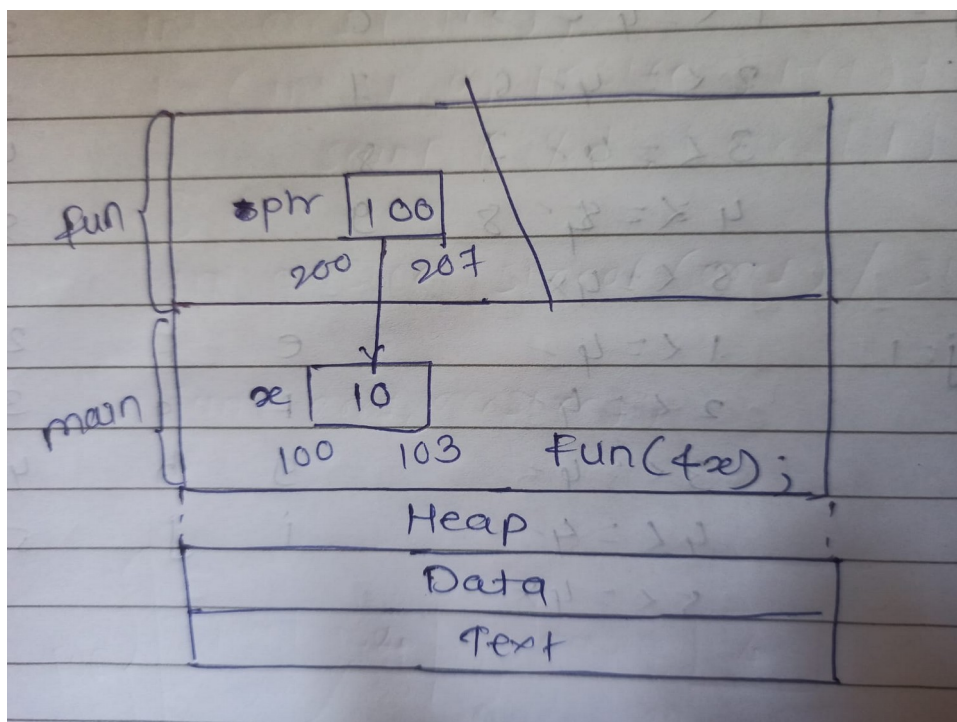 fun
ptr 100
200 207
main
x 10
100 103 fun(&x);
Heap
Data
Text